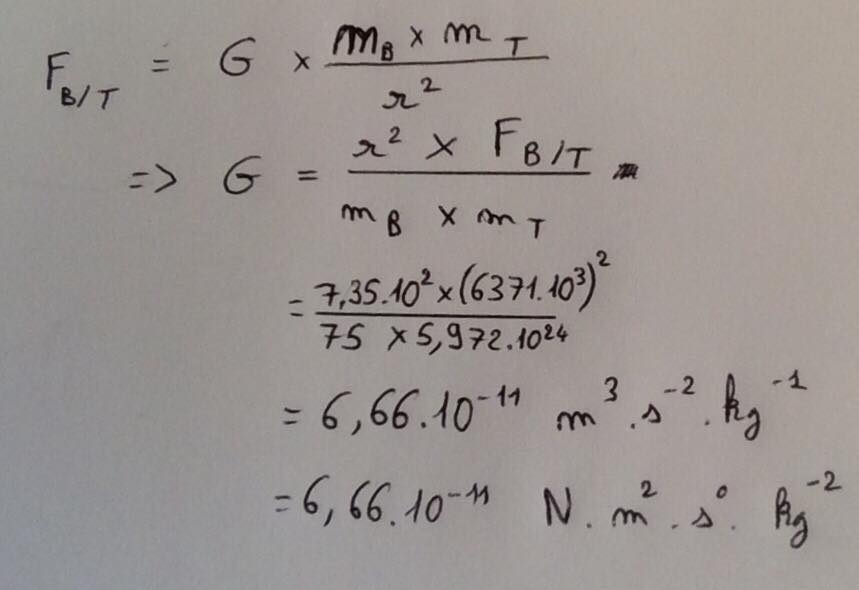 F_{B/T} = G × \frac{m_B × m_T}{r^2}
=> G = \frac{r^2 × F_{B/T}}{m_B × m_T}
= \frac{7,35.10^2 × (6371.10^3)^2}{75 × 5,972.10^{24}}
= 6,66.10^{-11} m^3.s^{-2}.kg^{-1}
= 6,66.10^{-11} N.m^2.s^0.kg^{-2}